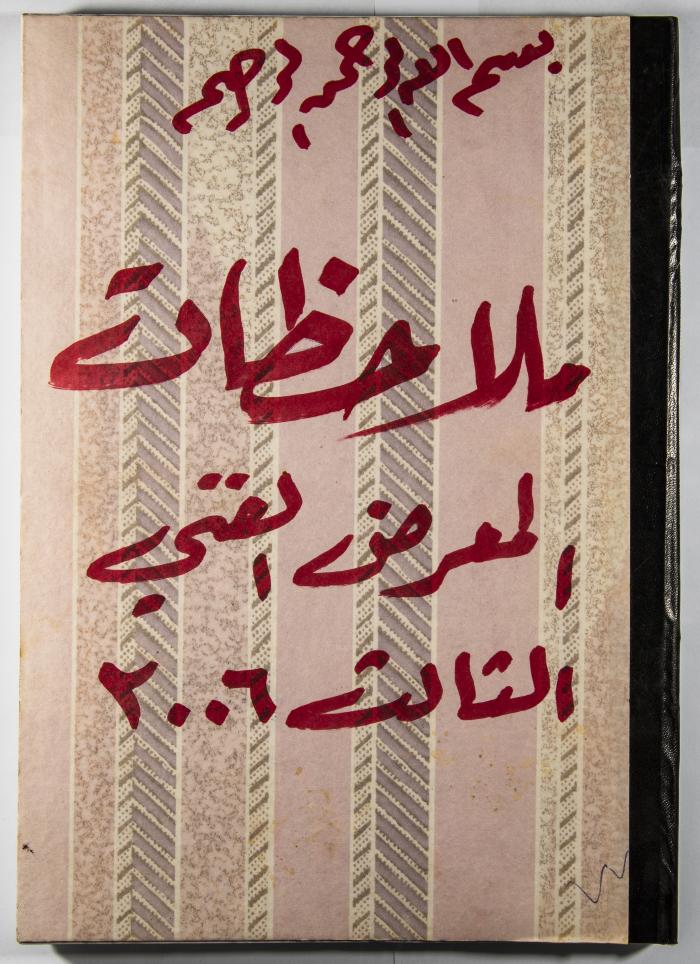 بسم الله الرحمن الرحيم
ملاحظات
المعرض الفني
الثالث ٢٠٠٦